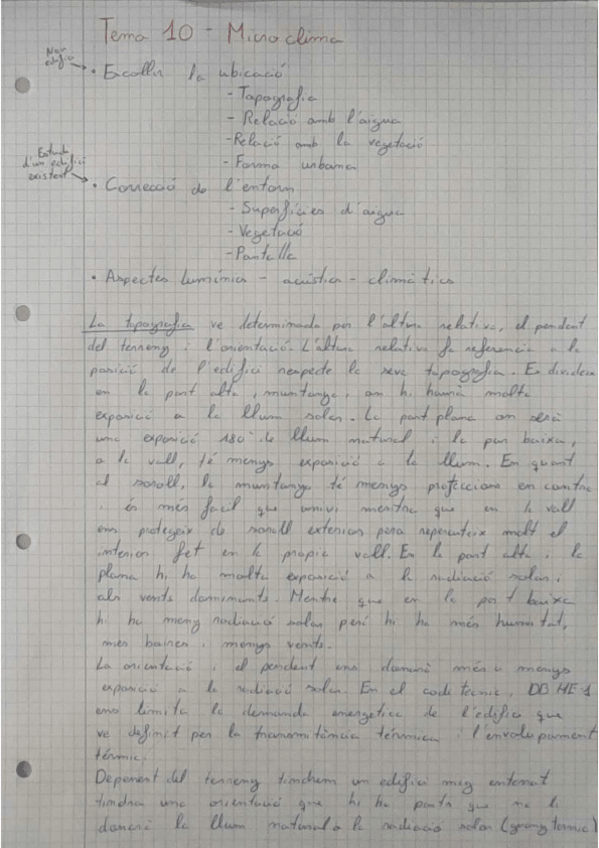 Tema 10 - Microclima
Nou edifici → • Escollir la ubicació
- Topografia
- Relació amb l'aigua
- Relació amb la vegetació
- Forma urbana
Estudi d'un edifici existent → • Correcció de l'entorn
- Superfícies d'aigua
- Vegetació
- Pantalla
• Aspectes lumínics - acústics - climàtics
La topografia ve determinada per l'altura relativa, el pendent
del terreny i l'orientació. L'altura relativa fa referencia a la
posició de l'edifici respecte la seva topografia. Es divideix
en la part alta, muntanya, on hi haurà molta
exposició a la llum solar. La part plana on serà
una exposició 180° de llum natural i la part baixa,
a la vall, té menys exposició a la llum. En quant
al soroll, la muntanya té menys proteccions en contra
i és més fàcil que arrivi mentre que en la vall
ens protegeix de soroll exterior pero repercuteix molt el
interior fet en la propia vall. En la part alta i la
plana hi ha molta exposició a la radiació solar i
als vents dominants. Mentre que en la part baixa
hi ha meny radiació solar però hi ha més humitat,
més baixes i menys vents.
La orientació i el pendent ens donarà més o menys
exposició a la radiació solar. En el codi tecnic, DB HE-1
ens limita la demanda energetica de l'edifici que
ve definit per la transmitància tèrmica i l'envolupament
tèrmic.
Depenent del terreny tindrem un edifici mig enterrat
tindrà una orientació que hi ha parts que no li
donarà la llum natural o la radiació solar